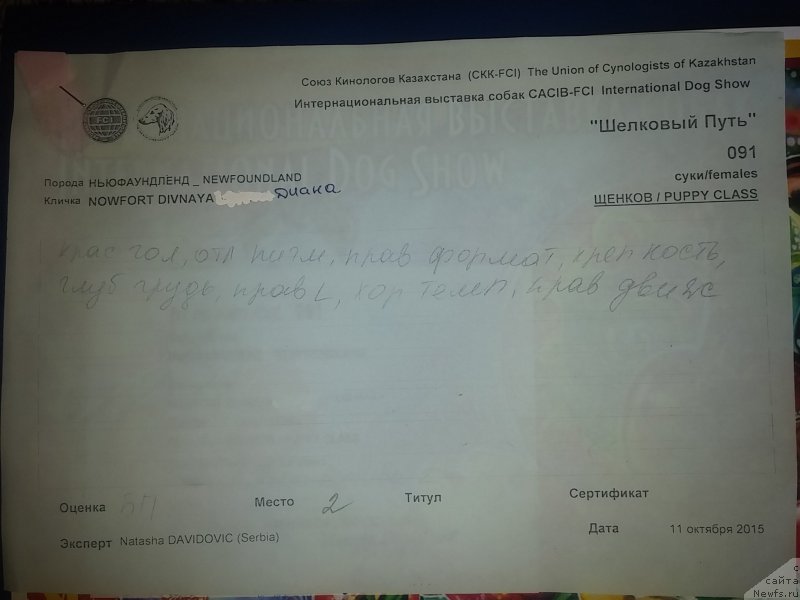 Союз Кинологов Казахстана (СКК-FCI) The Union of Cynologists of Kazakhstan
Интернациональная выставка собак CACIB-FCI International Dog Show
"Шелковый Путь"
091
суки/females
ЩЕНКОВ / PUPPY CLASS
FCI
Порода НЬЮФАУНДЛЕНД _ NEWFOUNDLAND
Кличка NOWFORT DIVNAYA Диана
DOG SHOW
крас гол, отл пигм, прав формат, крепкость,
глуб грудь, прав L, хор темп, прав движ
Оценка Место 2 Титул Сертификат
Эксперт Natasha DAVIDOVIC (Serbia) Дата 11 октября 2015
с
сайта
Newfs.ru